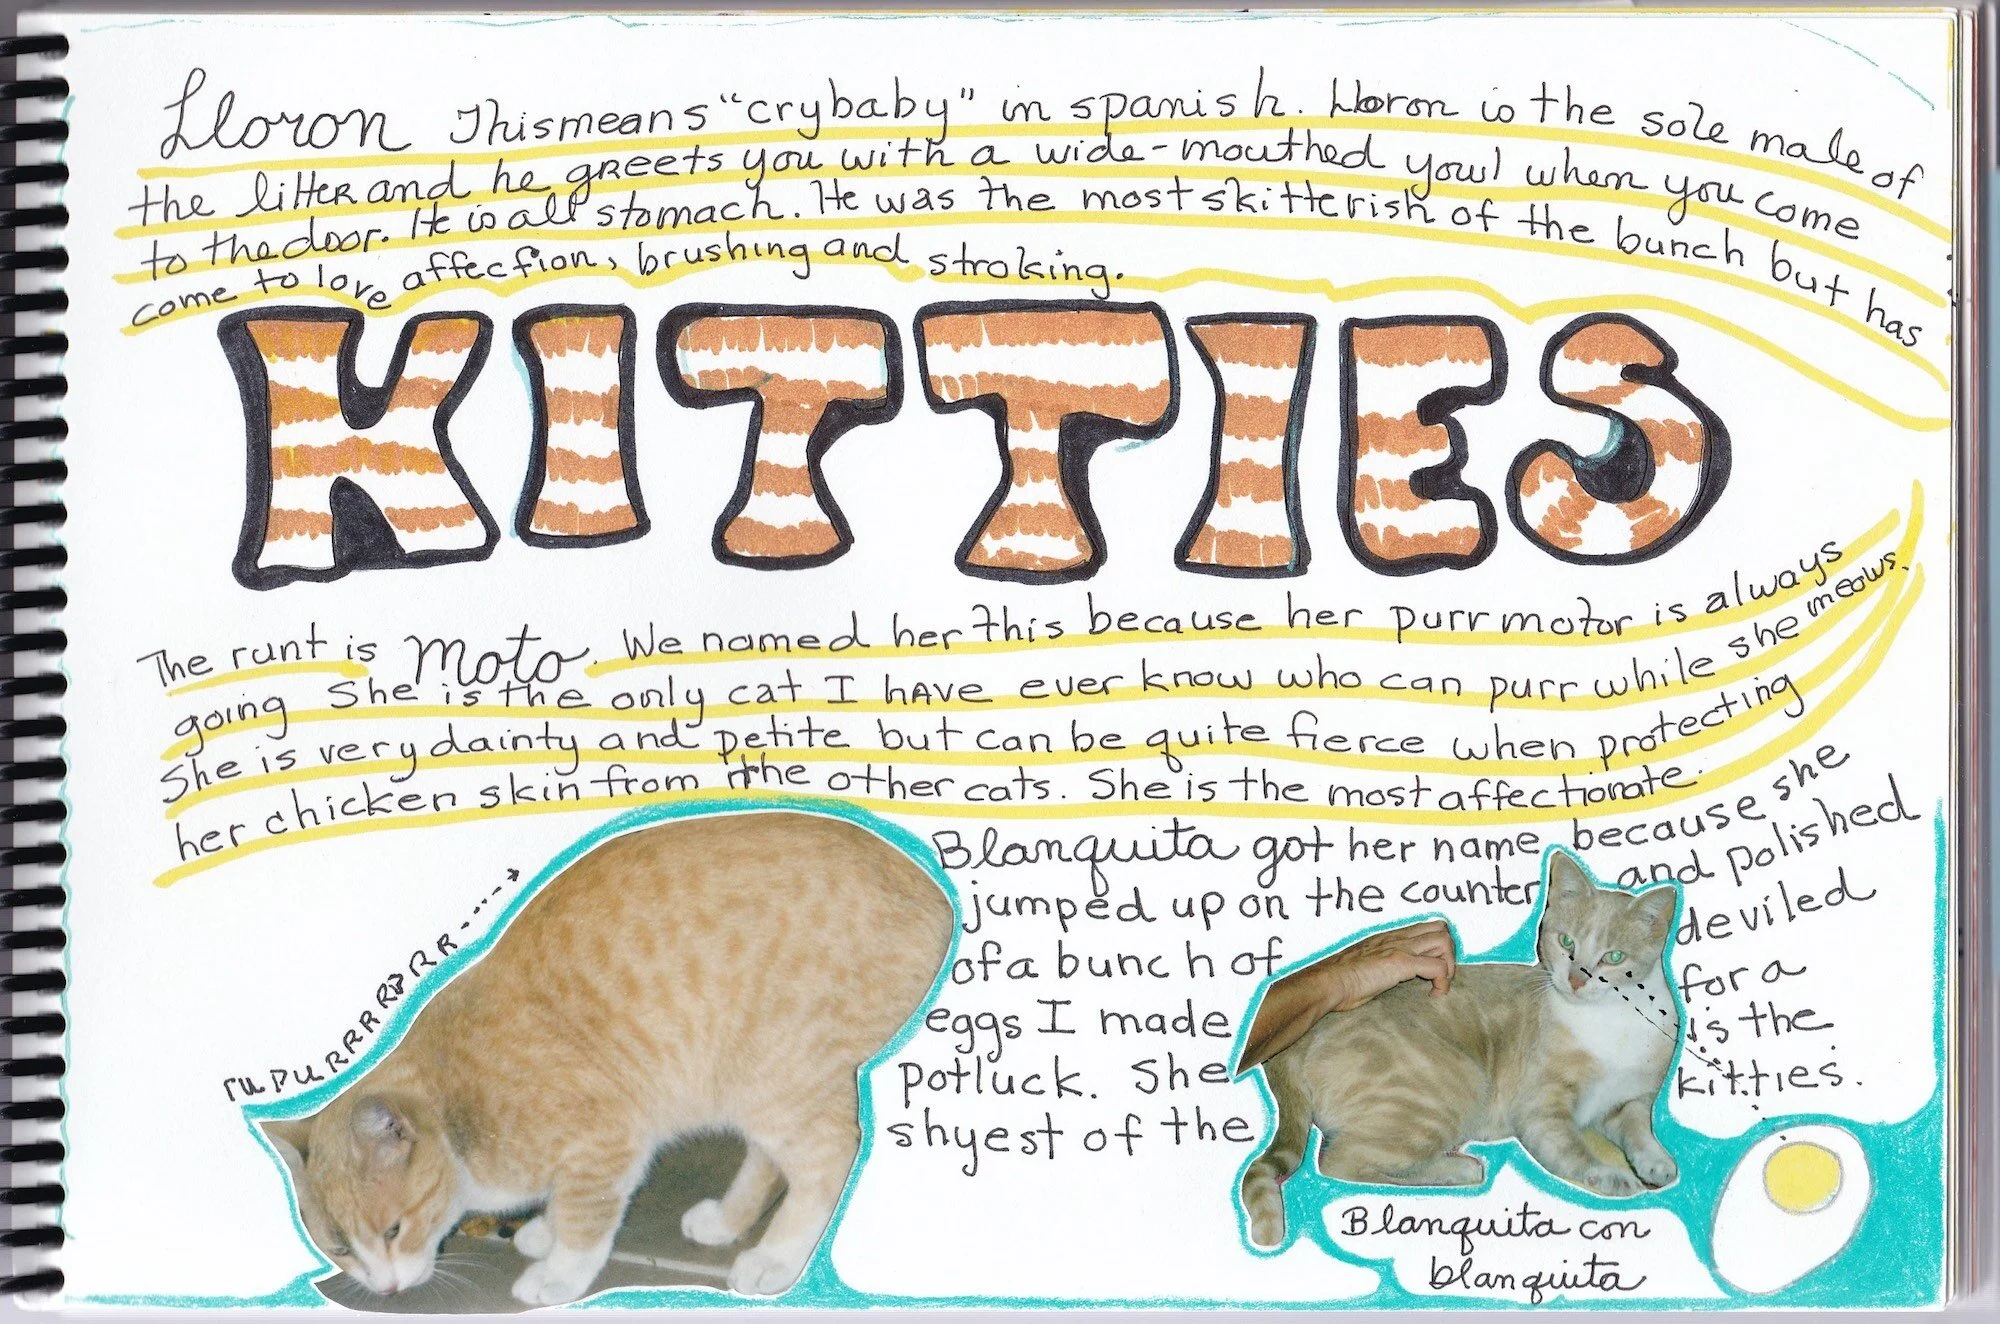 Lloron Thismeans "crybaby" in spanish. Lloron is the sole male of
the litter and he greets you with a wide-mouthed yowl when you come
to the door. He is all stomach. He was the most skitterish of the bunch but has
come to love affection, brushing and stroking.
KITTIES
The runt is Moto. We named her this because her purr motor is always
going She is the only cat I have ever know who can purr while she meows.
She is very dainty and petite but can be quite fierce when protecting
her chicken skin from the other cats. She is the most affectionate.
Blanquita got her name because she
jumped up on the counter and polished
of a bunch of deviled
eggs I made for a
potluck. She is the
shyest of the kitties.
ru purrrrrrrr
Blanquita con
blanquita